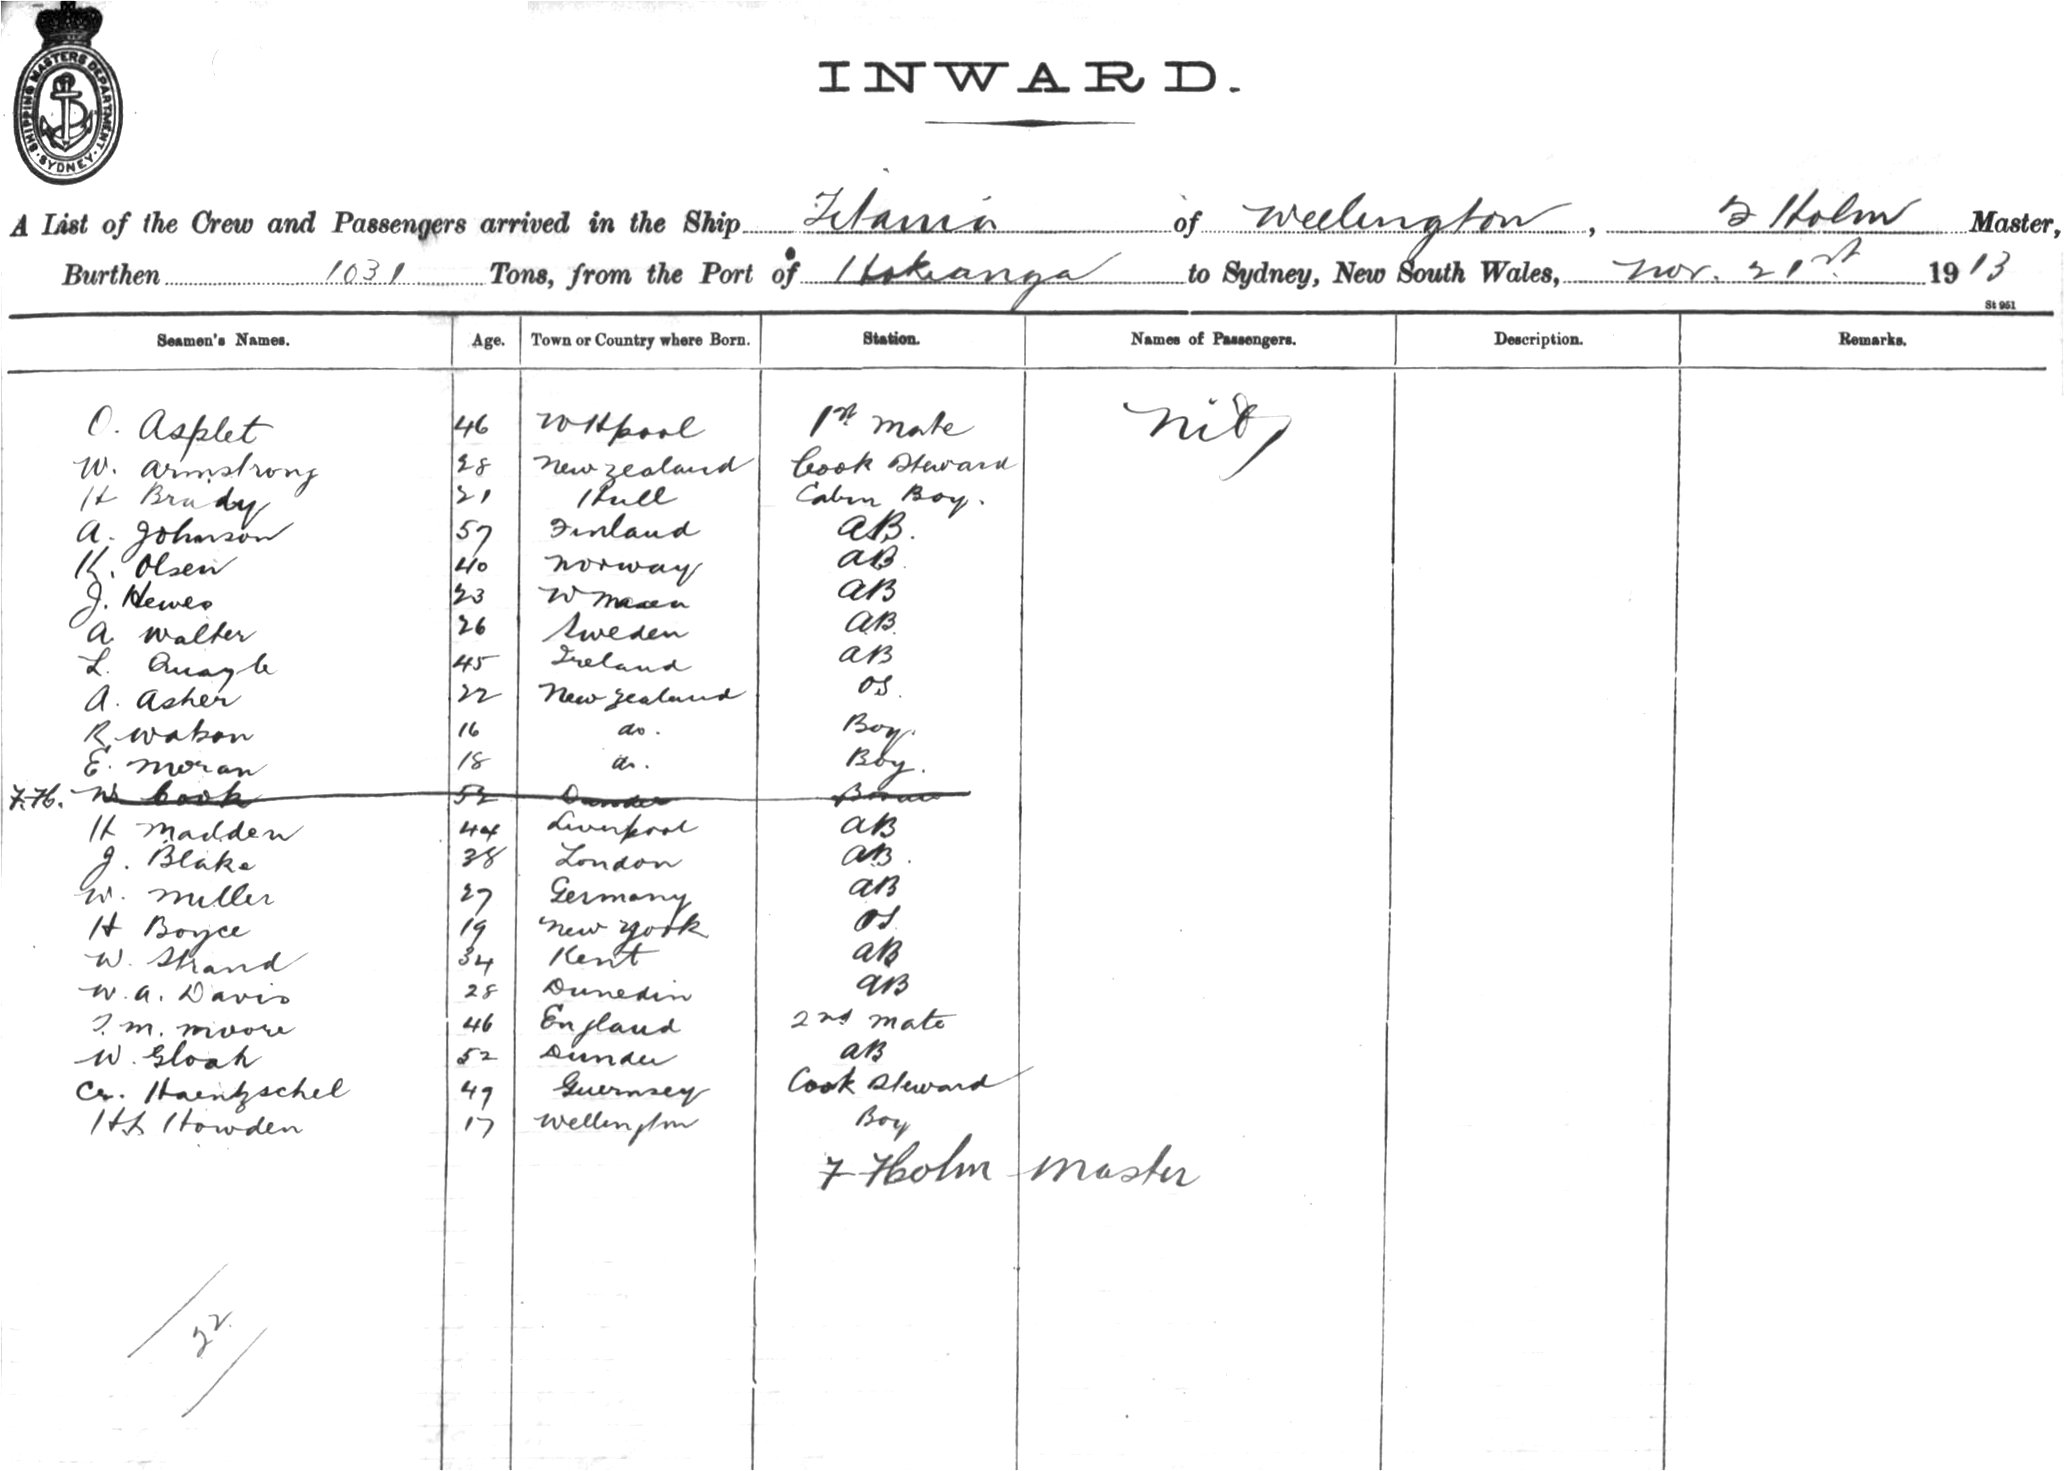 SHIPPING MASTERS DEPARTMENT. SYDNEY.
INWARD.
A List of the Crew and Passengers arrived in the Ship Titania of Wellington, F Holm Master,
Burthen 1031 Tons, from the Port of Hokianga to Sydney, New South Wales, Nov. 21st 1913
St 951
Seamen's Names. Age. Town or Country where Born. Station. Names of Passengers. Description. Remarks.
O. Asplet 46 W Hpool 1st Mate Nil
W. Armstrong 28 New Zealand Cook Steward
H Brady 21 Hull Cabin Boy.
A. Johnson 57 Finland AB.
K. Olsen 40 Norway AB.
J. Hewes 23 W AB
A Walter 26 Sweden AB.
L. Quayle 45 Ireland AB
A. Asher 22 New Zealand OS.
R. Watson 16 do. Boy.
E. Moran 18 do. Boy.
F.H. W Cook 52 Dundee
H Madden 44 Liverpool AB
J. Blake 38 London AB.
W. Miller 27 Germany AB
H Boyce 19 New York OS
W. Strand 34 Kent AB
W. A. Davis 28 Dunedin AB
T. M. Moore 46 England 2nd Mate
W. Gloak 52 Dundee AB
Haentzschel 49 Guernsey Cook Steward
Howden 17 Wellington Boy
F Holm Master
22